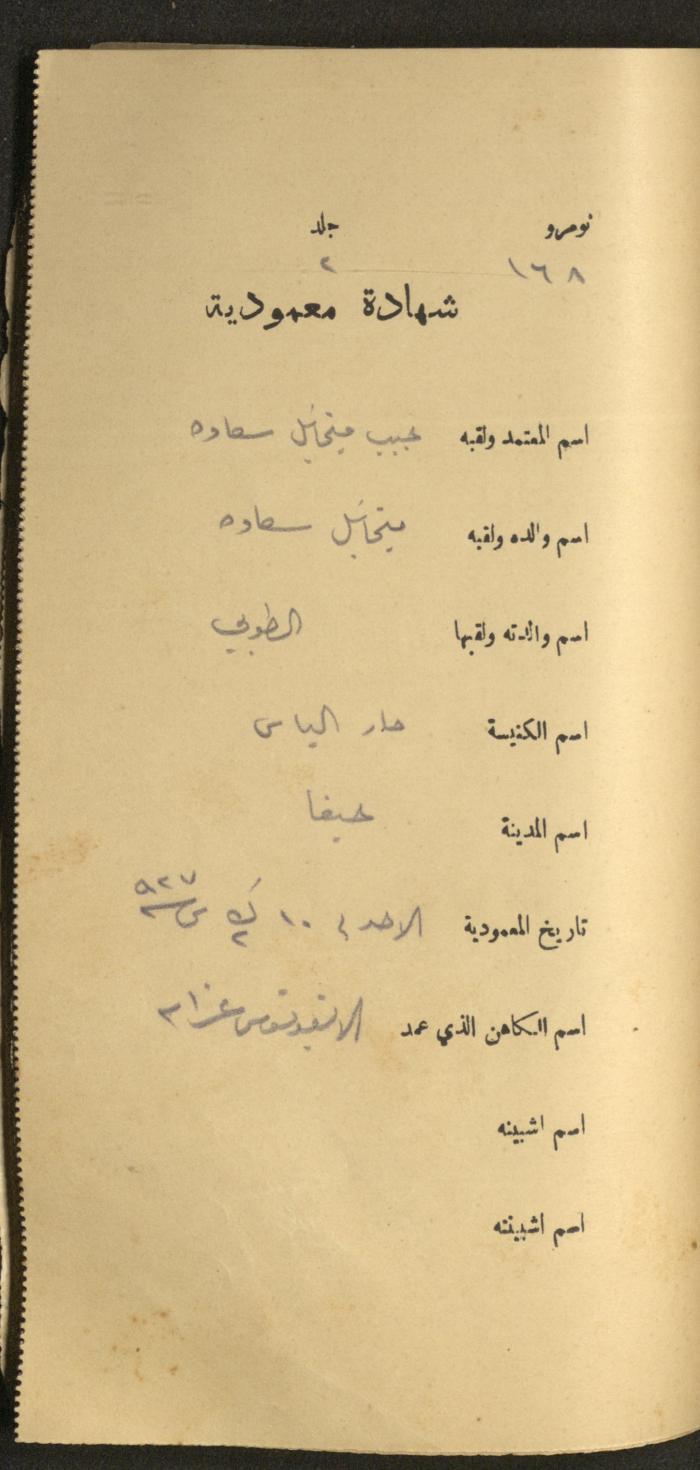 نومرو جلد
١٦٨ ٢
شهادة معمودية
اسم المعتمد ولقبه حبيب ميخائيل سعاده
اسم والده ولقبه ميخائيل سعاده
اسم والدته ولقبها الطوبي
اسم الكنيسة مار الياس
اسم المدينة حيفا
تاريخ المعمودية الاحد في ١٠ ك٢ سنة ٩٢٧
اسم الكاهن الذي عمد عزام
اسم اشبينه
اسم اشبينته